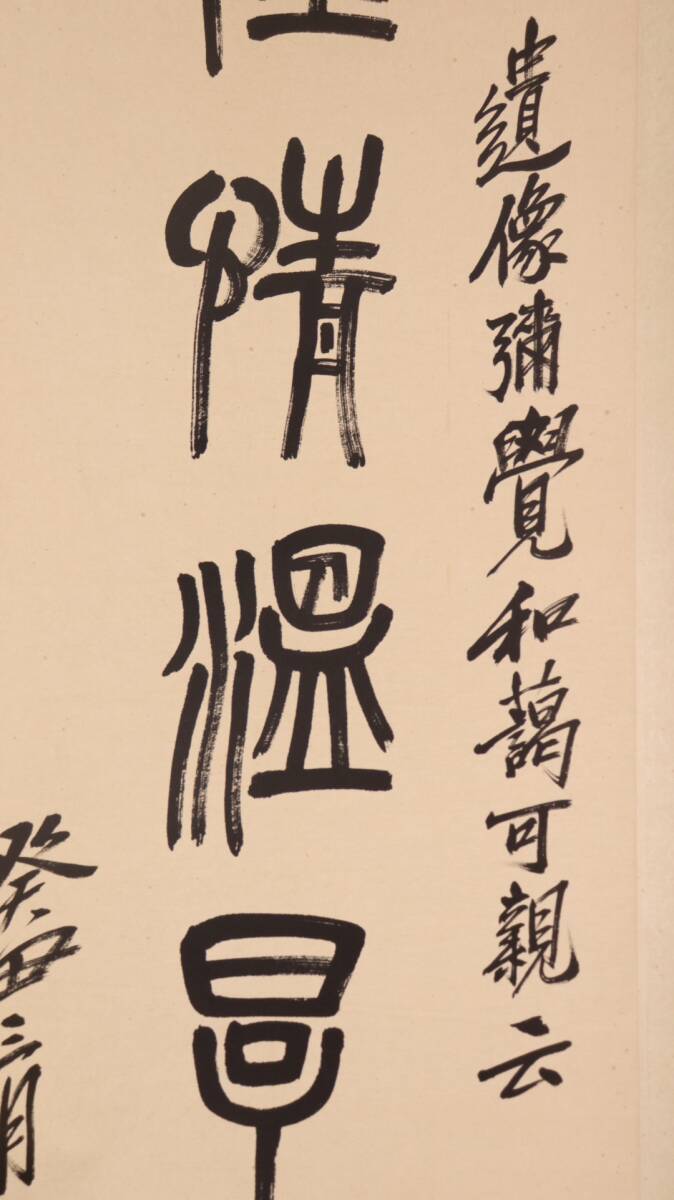 遺像彌覺和藹可親云
情溫
癸丑三月